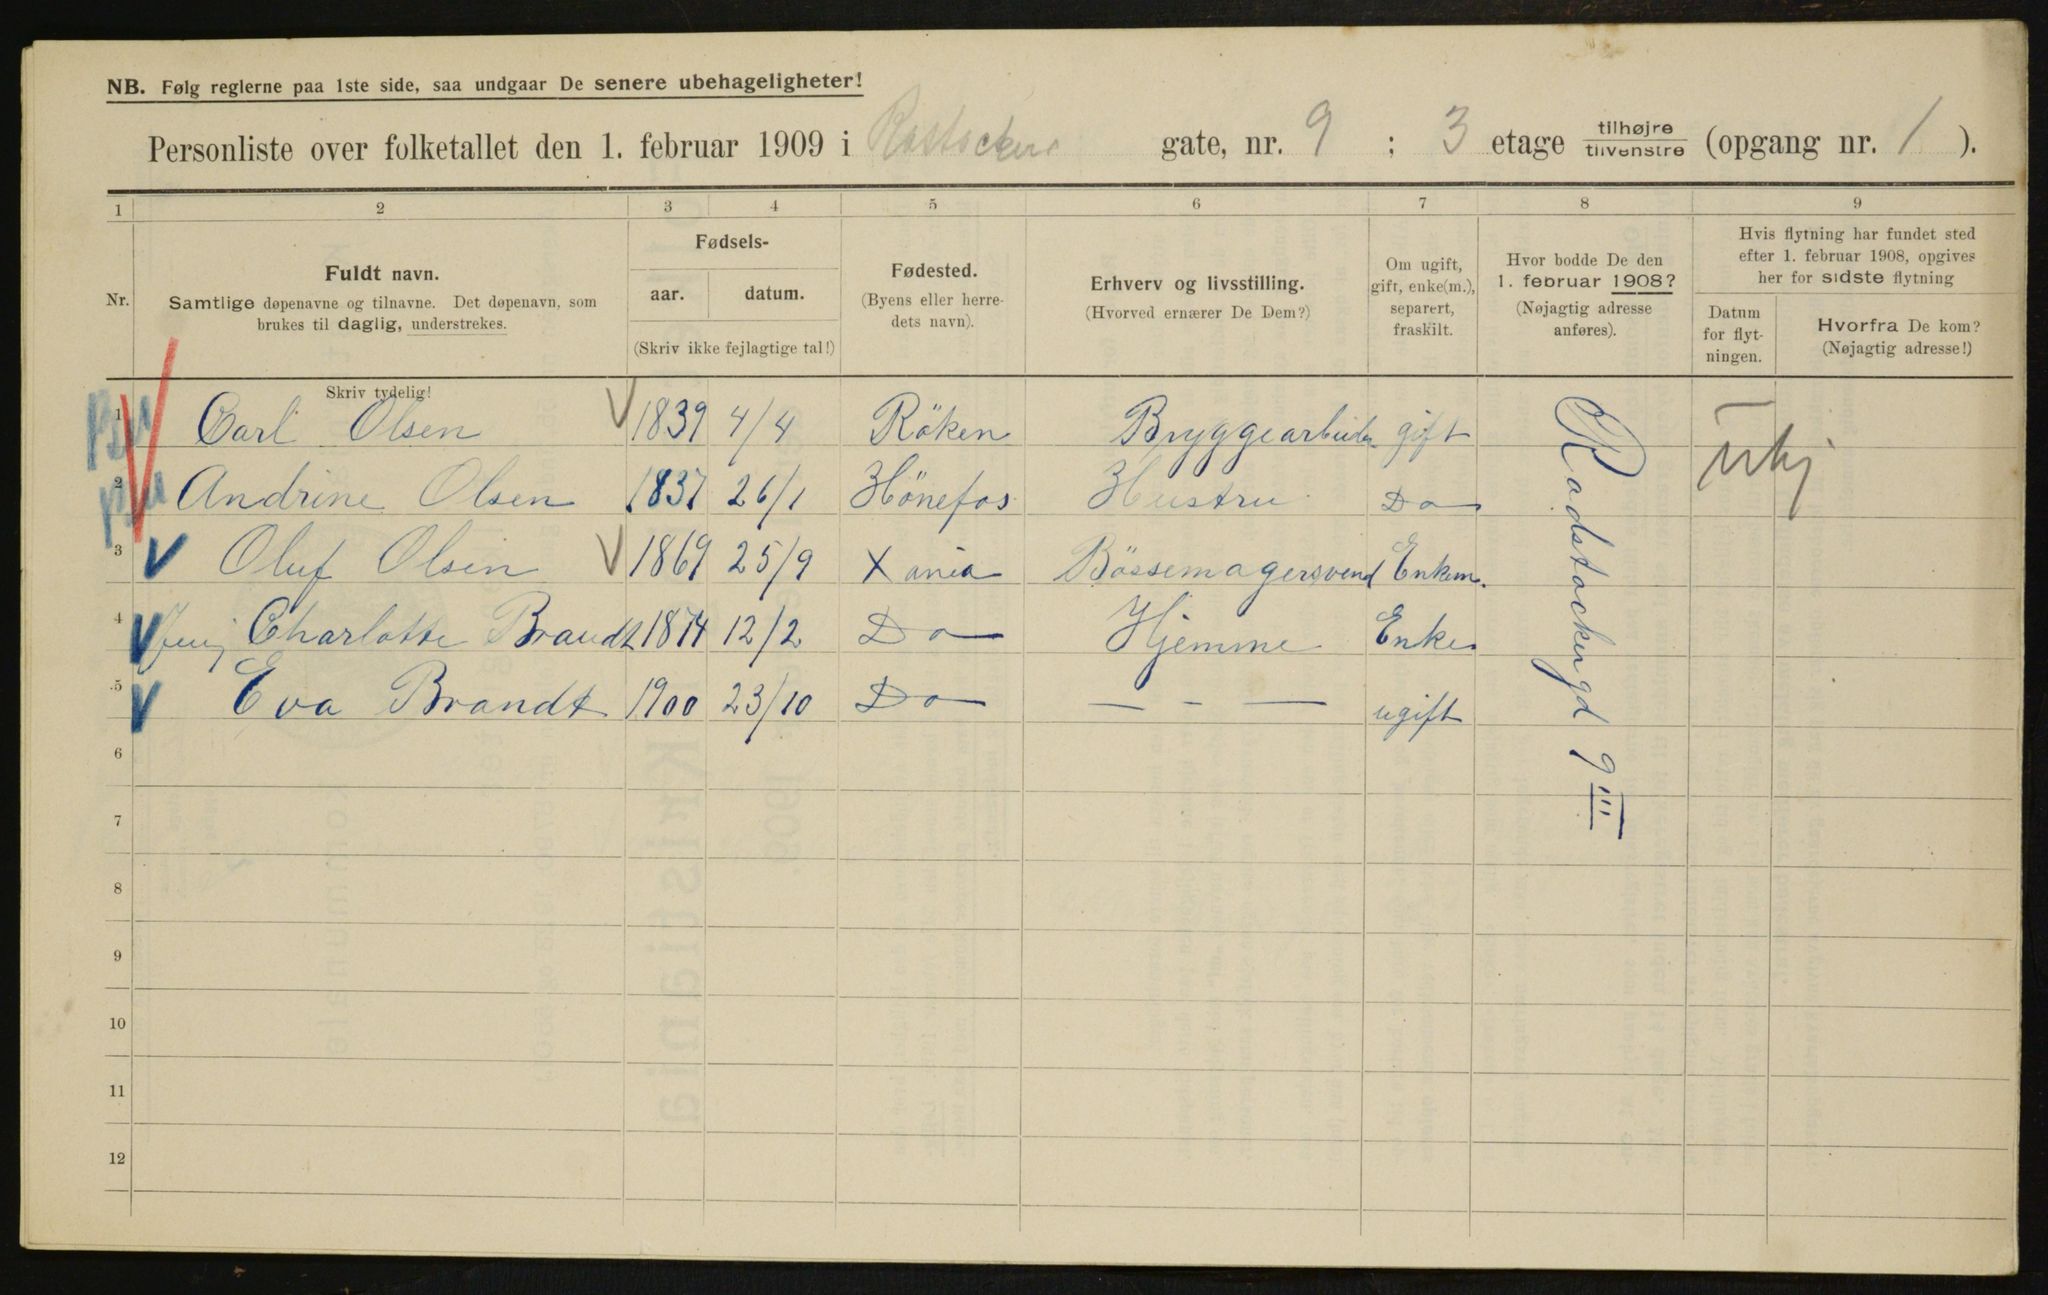 NB. Følg reglerne paa 1ste side, saa undgaar De senere ubehageligheter!
Personliste over folketallet den 1. februar 1909 i Rostockere gate, nr. 9 ; 3 etage tilhøjre / tilvenstre (opgang nr. 1 ).
1 2 3 4 5 6 7 8 9
Nr.
Fuldt navn.
Samtlige døpenavne og tilnavne. Det døpenavn, som
brukes til daglig, understrekes.
Skriv tydelig!
Fødsels-
aar. datum.
(Skriv ikke fejlagtige tal!)
Fødested.
(Byens eller herre-
dets navn).
Erhverv og livsstilling.
(Hvorved ernærer De Dem?)
Om ugift,
gift, enke(m.),
separert,
fraskilt.
Hvor bodde De den
1. februar 1908?
(Nøjagtig adresse
anføres).
Hvis flytning har fundet sted
efter 1. februar 1908, opgives
her for sidste flytning
Datum
for flyt-
ningen.
Hvorfra De kom?
(Nøjagtig adresse!)
1 Carl Olsen 1839 4/4 Röken Bryggearbeider gift
2 Andrine Olsen 1837 26/1 Hönefos Hustru Do
3 Oluf Olsen 1869 25/9 Xania Bössemagersvend Enkem.
4 Charlotte Brandt 1874 12/2 Do Hjemme Enke
5 Eva Brandt 1900 23/10 Do — - — ugift
Radstockergd 9 III
6
7
8
9
10
11
12